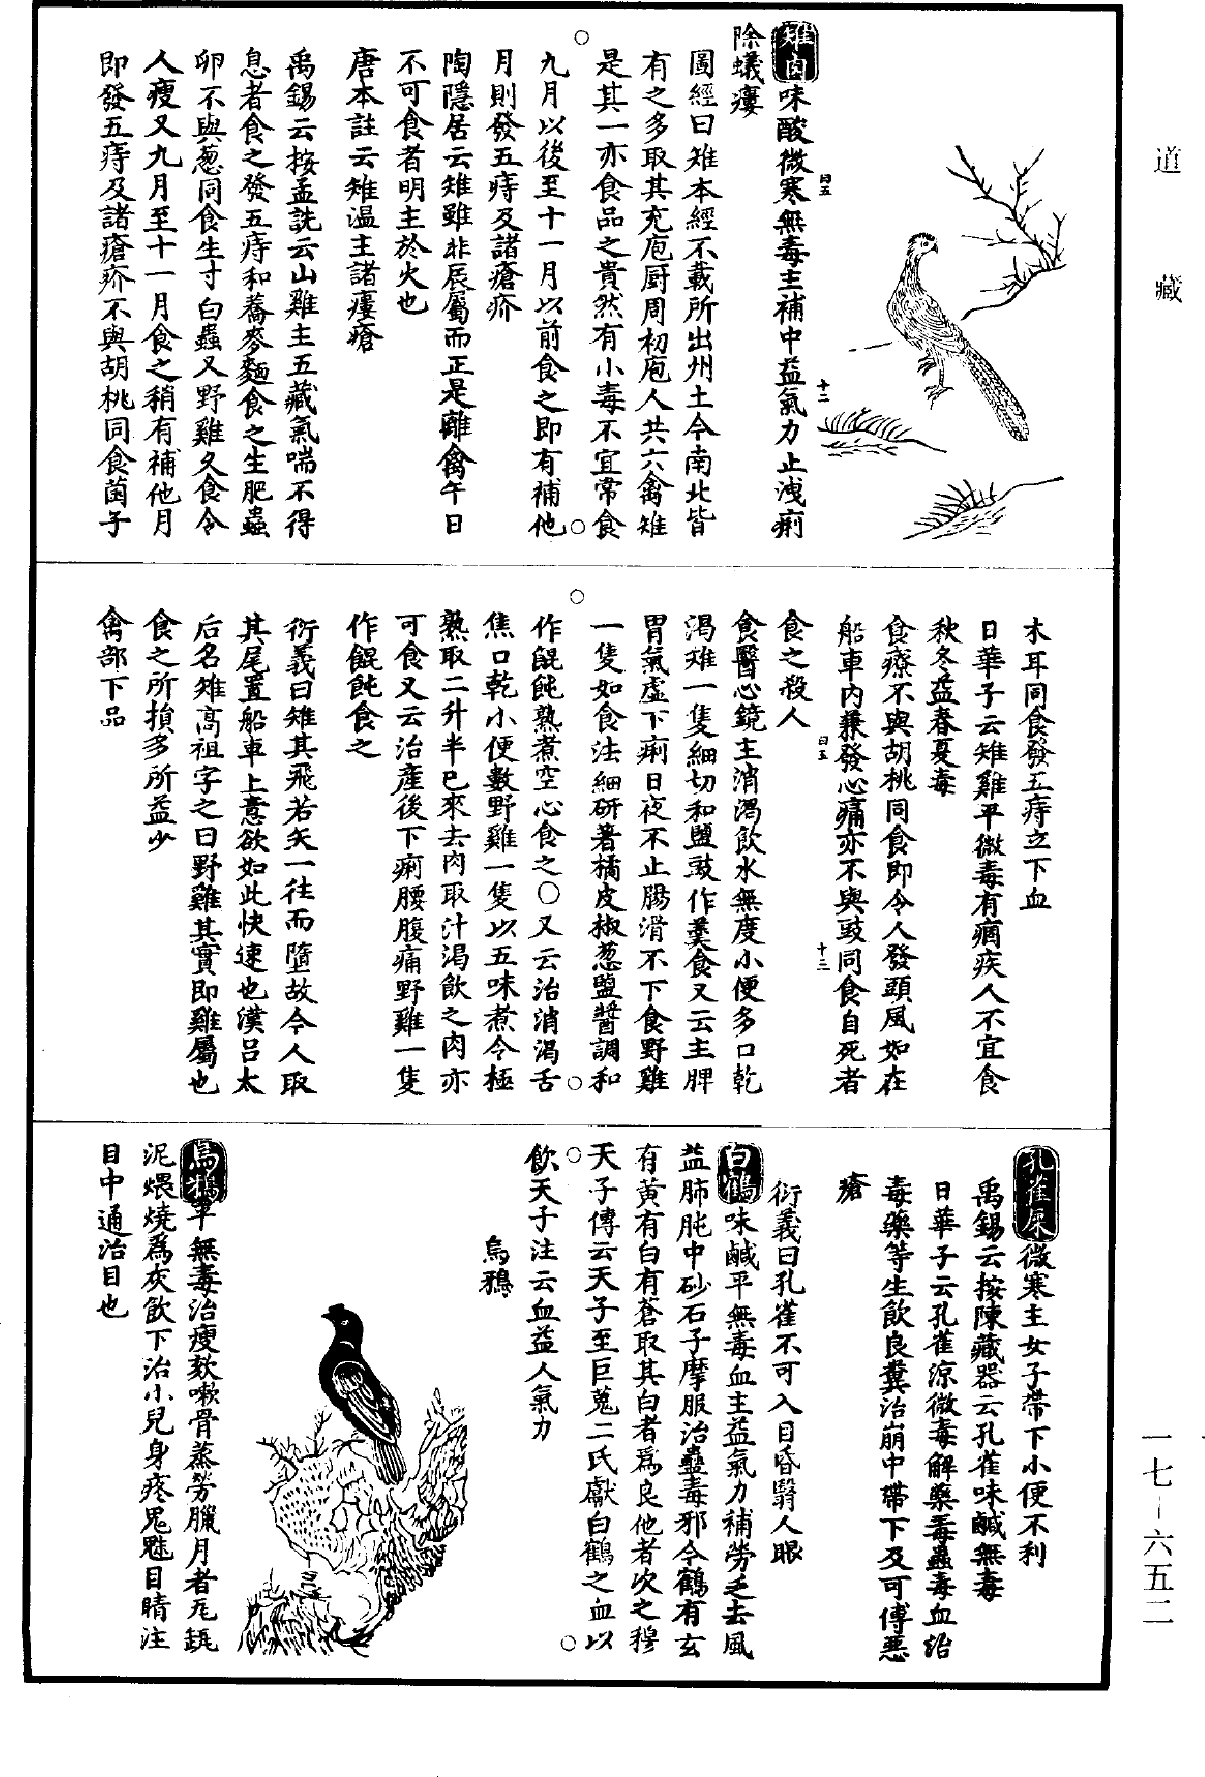 道藏
雉肉味酸微寒無毒主補中益氣力止洩痢
除蟻瘻
圖經曰雉本經不載所出州土今南北皆
有之多取其充庖厨周礿庖人共六禽雉
是其一亦食品之貴然有小毒不宜常食
九月以後至十一月以前食之即有補他
月則發五痔及諸瘡疥
陶隱居云雉雖非辰屬而正是離禽午日
不可食者明主於火也
唐本註云雉温主諸瘻瘡
禹錫云按孟詵云山雞主五藏氣喘不得
息者食之發五痔和蕎麥麵食之生肥蟲
卵不與葱同食生寸白蟲又野雞久食令
人瘦又九月至十一月食之稍有補他月
即發五痔及諸瘡疥不與胡桃同食菌子
木耳同食發五痔立下血
日華子云雉雞平微毒有痼疾人不宜食
秋冬益春夏毒
食療不與胡桃同食即令人發頭風如在
船車内兼發心痛亦不與豉同食自死者
食之殺人
食醫心鏡主消渴飲水無度小便多口乾
渴雉一隻細切和鹽豉作羹食又云主脾
胃氣虛下痢日夜不止腸滑不下食野雞
一隻如食法細研著橘皮椒葱鹽醬調和
作餛飩熟煮空心食之○又云治消渴舌
焦口乾小便數野雞一隻以五味煮令極
熟取二升半已來去肉取汁渴飲之肉亦
可食又云治產後下痢腰腹痛野雞一隻
作餛飩食之
衍義曰雉其飛若矢一往而墮故今人取
其尾置船車上意欲如此快速也漢吕太
后名雉高祖字之曰野雞其實即雞屬也
食之所損多所益少
禽部下品
孔雀屎微寒主女子帶下小便不利
禹錫云按陳藏器云孔雀味鹹無毒
日華子云孔雀涼微毒解藥毒蟲毒血治
毒藥等生飲良糞治崩中帶下及可傅惡
瘡
衍義曰孔雀不可入目昏翳人眼
白鶴味鹹平無毒血主益氣力補勞乏去風
益肺肫中砂石子摩服治蠱毒邪今鶴有玄
有黄有白有蒼取其白者爲良他者次之穆
天子傳云天子至巨蒐二氏獻白鶴之血以
飲天子注云血益人氣力
烏鴉
烏鴉平無毒治瘦欬嗽骨蒸勞臘月者瓦瓶
泥煨燒爲灰飲下治小兒身疼鬼魅目睛注
目中通治目也
一七-六五二